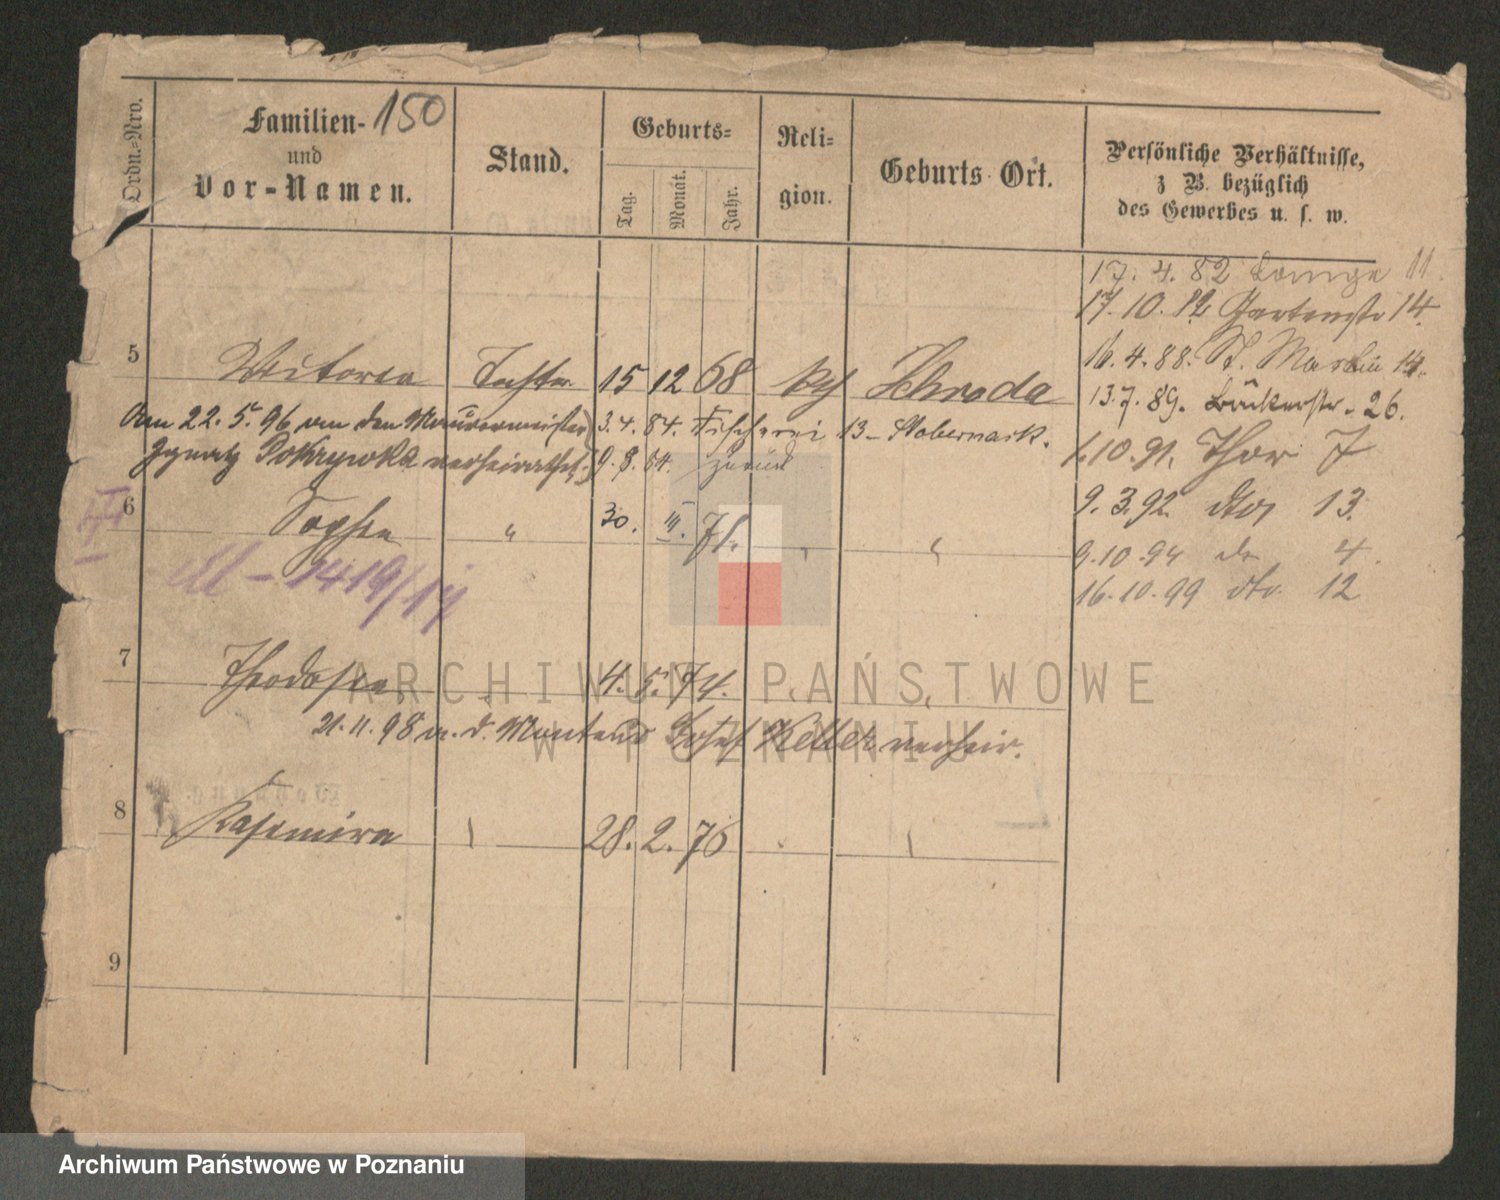 Ordn.-Nro.
Familien-
150
und
Vor-Namen.
Stand.
Geburts-
Tag.
Monat.
Jahr.
Reli-
gion.
Geburts Ort.
Persönliche Verhältnisse,
z B. bezüglich
des Gewerbes u. s. w.
17. 4. 82 11.
17. 10. 82 Gartenstr 14.
16. 4. 88. St. Martin 14.
13. 7. 89. Bäckerstr. 26.
1.10.91. Thor 7
9. 3. 92 dto 13.
9.10.94 do 4.
16.10.99 dto 12
5 Victoria Tochter 15 12 68 kth Schroda
Am 22. 5. 96 an den Maurermeister 3.4.84. Fischerei 13
Ignatz Pokrywka verheirathet. 9.8.84. zurück
6 Sophia " 30. III. 71. " "
M-1419/14
7 Theodosia " 4. 5. 74. " "
21.11.98 a. d. Monteur Josef Keller verheir.
8 Kasimira 28. 2. 76
9
ARCHIWUM PAŃSTWOWE
W POZNANIU
Archiwum Państwowe w Poznaniu